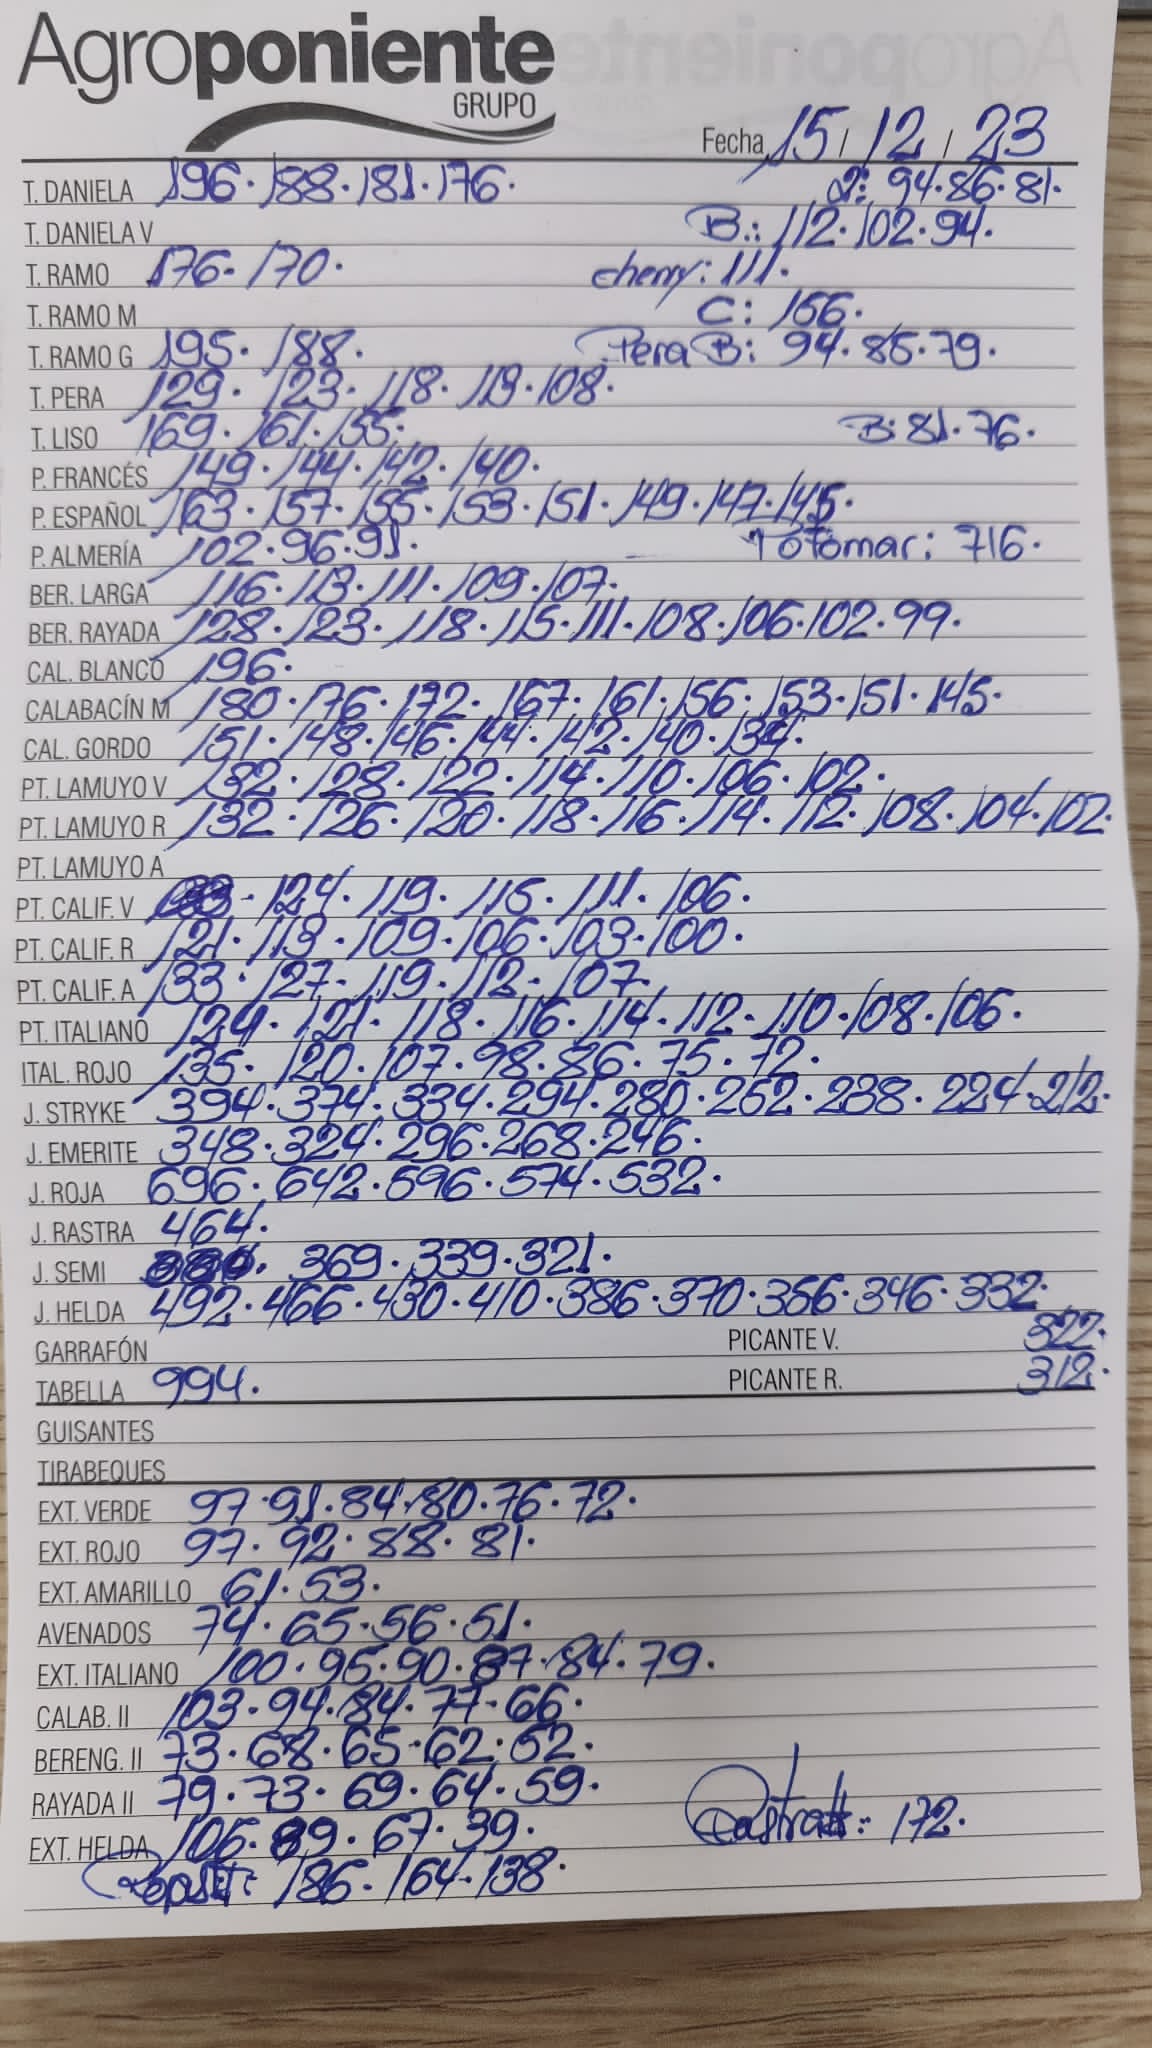 Agroponiente
GRUPO
Fecha 15 / 12 / 23
T. DANIELA 196. 188. 181. 176. 2: 94. 86. 81.
T. DANIELA V B.: 112. 102. 94.
T. RAMO 176. 170. cherry: 111.
T. RAMO M C: 166.
T. RAMO G 195. 188. Pera B: 94. 85. 79.
T. PERA 129. 123. 118. 113. 108.
T. LISO 169. 161. 155. B: 81. 76.
P. FRANCÉS 149. 144. 142. 140.
P. ESPAÑOL 163. 157. 155. 153. 151. 149. 147. 145.
P. ALMERÍA 102. 96. 91. Totomar: 716.
BER. LARGA 116. 113. 111. 109. 107.
BER. RAYADA 128. 123. 118. 115. 111. 108. 106. 102. 99.
CAL. BLANCO 196.
CALABACÍN M 180. 176. 172. 167. 161. 156. 153. 151. 145.
CAL. GORDO 151. 148. 146. 144. 142. 140. 134.
PT. LAMUYO V 132. 128. 122. 114. 110. 106. 102.
PT. LAMUYO R 132. 126. 120. 118. 116. 114. 112. 108. 104. 102.
PT. LAMUYO A
PT. CALIF. V 124. 119. 115. 111. 106.
PT. CALIF. R 121. 113. 109. 106. 103. 100.
PT. CALIF. A 133. 127. 119. 112. 107.
PT. ITALIANO 124. 121. 118. 116. 114. 112. 110. 108. 106.
ITAL. ROJO 135. 120. 107. 98. 86. 75. 72.
J. STRYKE 394. 374. 334. 294. 280. 262. 238. 224. 212.
J. EMERITE 348. 324. 296. 268. 246.
J. ROJA 696. 642. 596. 574. 532.
J. RASTRA 464.
J. SEMI 369. 339. 321.
J. HELDA 492. 466. 430. 410. 386. 370. 356. 346. 332.
GARRAFÓN PICANTE V. 322.
TABELLA 994. PICANTE R. 312.
GUISANTES
TIRABEQUES
EXT. VERDE 97. 91. 84. 80. 76. 72.
EXT. ROJO 97. 92. 88. 81.
EXT. AMARILLO 61. 53.
AVENADOS 74. 65. 56. 51.
EXT. ITALIANO 100. 95. 90. 87. 84. 79.
CALAB. II 103. 94. 84. 77. 66.
BERENG. II 73. 68. 65. 62. 52.
RAYADA II 79. 73. 69. 64. 59.
EXT. HELDA 106. 89. 67. 39. 172.
186. 164. 138.